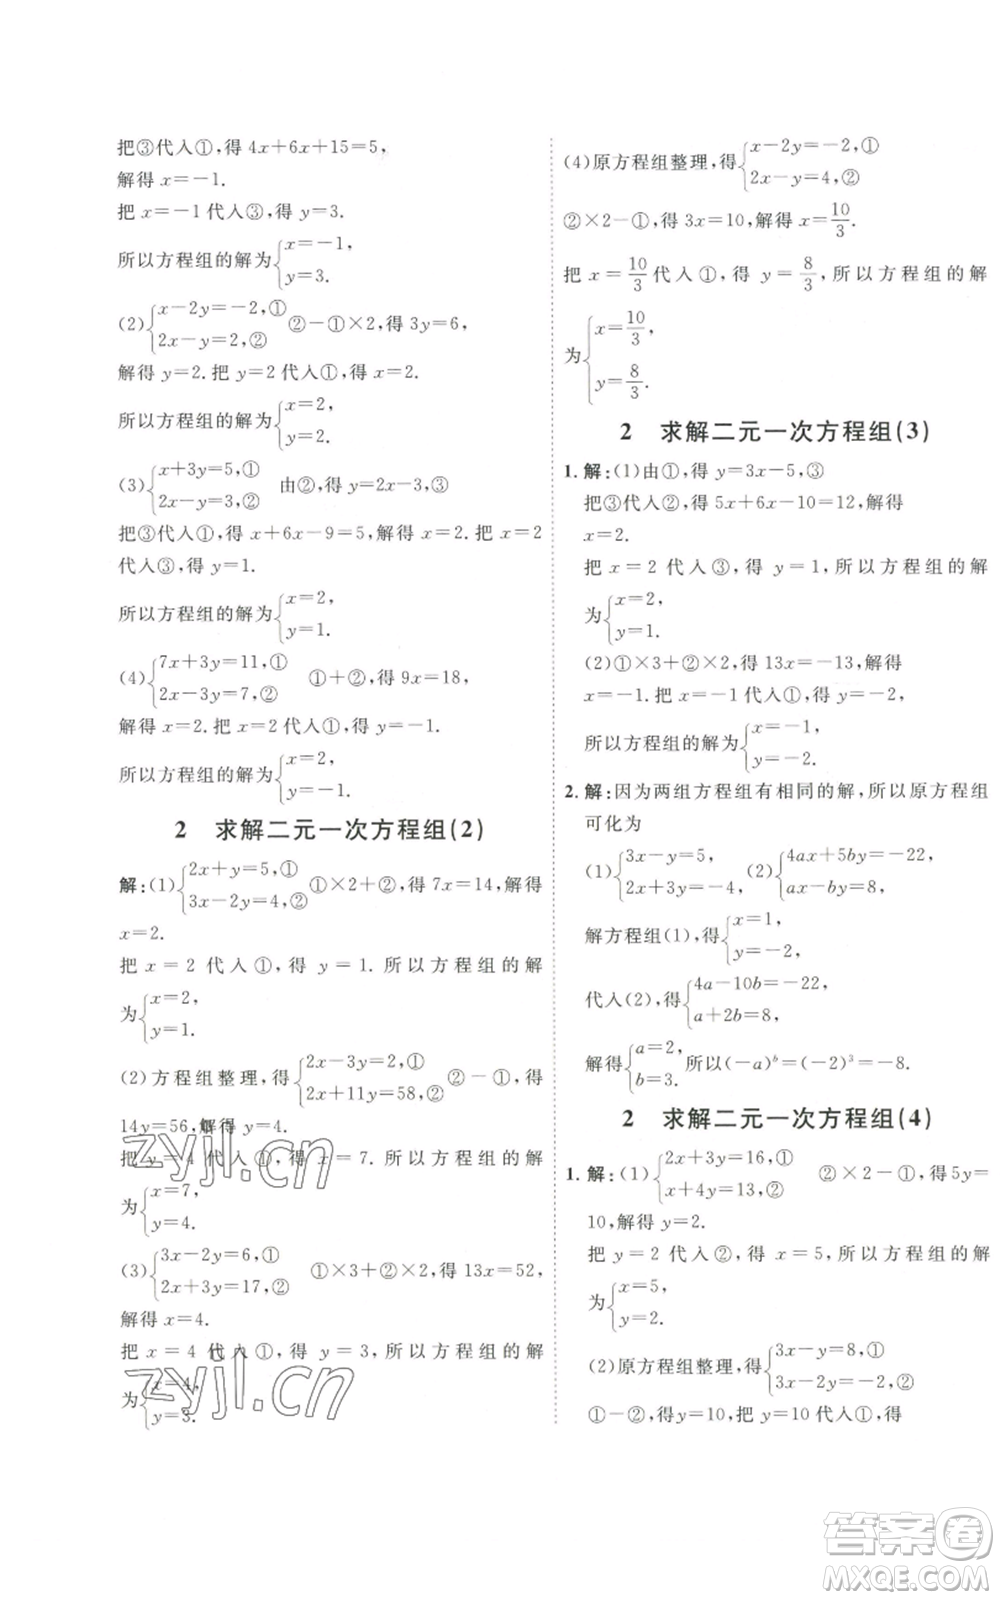 把③代入①,得 4x+6x+15=5,
解得 x=-1.
把 x=-1 代入③,得 y=3.
所以方程组的解为{x=-1,
y=3.
(2){x-2y=-2,①
2x-y=2,② ②-①×2,得 3y=6,
解得 y=2.把 y=2 代入①,得 x=2.
所以方程组的解为{x=2,
y=2.
(3){x+3y=5,①
2x-y=3,② 由②,得 y=2x-3,③
把③代入①,得 x+6x-9=5,解得 x=2.把 x=2
代入③,得 y=1.
所以方程组的解为{x=2,
y=1.
(4){7x+3y=11,①
2x-3y=7,② ①+②,得 9x=18,
解得 x=2.把 x=2 代入①,得 y=-1.
所以方程组的解为{x=2,
y=-1.
2 求解二元一次方程组(2)
解:(1){2x+y=5,①
3x-2y=4,② ①×2+②,得 7x=14,解得
x=2.
把 x=2 代入①,得 y=1.所以方程组的解
为{x=2,
y=1.
(2)方程组整理,得{2x-3y=2,①
2x+11y=58,② ②-①,得
14y=56,解得 y=4.
把 y=4 代入①,得 x=7.所以方程组的解
为{x=7,
y=4.
(3){3x-2y=6,①
2x+3y=17,② ①×3+②×2,得 13x=52,
解得 x=4.
把 x=4 代入①,得 y=3,所以方程组的解
为{x=4,
y=3.
(4)原方程组整理,得{x-2y=-2,①
2x-y=4,②
②×2-①,得 3x=10,解得 x=10/3.
把 x=10/3 代入①,得 y=8/3,所以方程组的解
为{x=10/3,
y=8/3.
2 求解二元一次方程组(3)
1.解:(1)由①,得 y=3x-5,③
把③代入②,得 5x+6x-10=12,解得
x=2.
把 x=2 代入③,得 y=1,所以方程组的解
为{x=2,
y=1.
(2)①×3+②×2,得 13x=-13,解得
x=-1.把 x=-1 代入①,得 y=-2,
所以方程组的解为{x=-1,
y=-2.
2.解:因为两组方程组有相同的解,所以原方程组
可化为
(1){3x-y=5,
2x+3y=-4, (2){4ax+5by=-22,
ax-by=8,
解方程组(1),得{x=1,
y=-2,
代入(2),得{4a-10b=-22,
a+2b=8,
解得{a=2,
b=3. 所以(-a)ᵇ=(-2)³=-8.
2 求解二元一次方程组(4)
1.解:(1){2x+3y=16,①
x+4y=13,② ②×2-①,得 5y=
10,解得 y=2.
把 y=2 代入②,得 x=5,所以方程组的解
为{x=5,
y=2.
(2)原方程组整理,得{3x-y=8,①
3x-2y=-2,②
①-②,得 y=10,把 y=10 代入①,得
zyjl.cn
zyjl.cn
答案圈
MXQE.COM